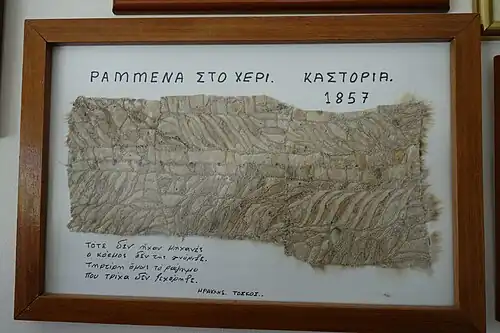 ΡΑΜΜΕΝΑ ΣΤΟ ΧΕΡΙ. ΚΑΣΤΟΡΙΑ.
1857
ΤΟΤΕ δεν ήχαν μηχανές
ο κόσμος δεν τις
όμως το ράψιμο
που τρίχα δεν
ΗΡΑΚΛΗΣ ΤΟΣΚΟΣ..